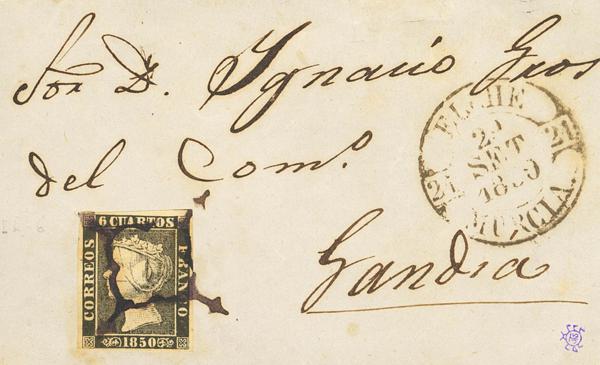 Sor. D. Ignacio Gros
del Com.o
Gandia
ELCHE
SET
1850
MURCIA.
6 CUARTOS
CORREOS
FRANCO
1850